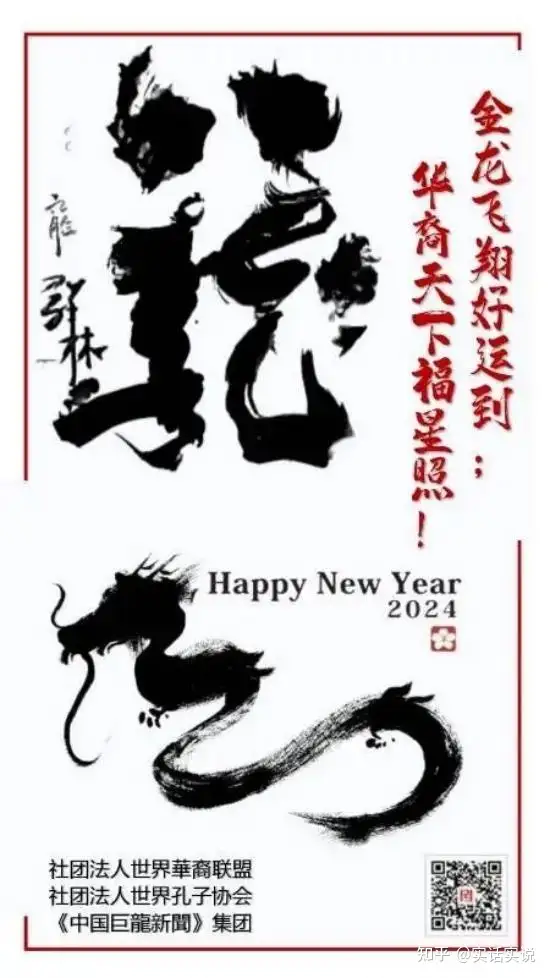 金龙飞翔好运到；
华裔天下福星照！
龍
Happy New Year
2024
社团法人世界華裔联盟
社团法人世界孔子协会
《中国巨龍新聞》集团
知乎 @实话实说